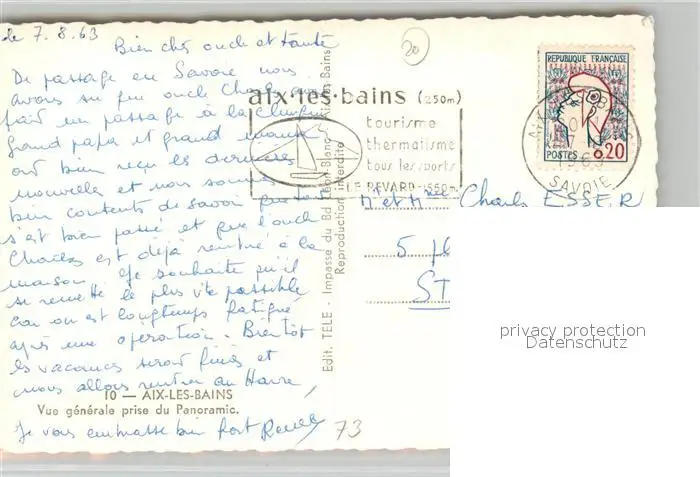 le 7.8.63
Bien cher oncle et tante
De passage en Savoie nous
avons su que oncle Charles avait
fait un passage à la clinique
Grand papa et grand maman
ont bien reçu les dernières
nouvelles et nous sommes
bien contents de savoir que tout
s'est bien passé et que l'oncle
Charles est déjà rentré à la
maison. Je souhaite qu'il
se remette le plus vite possible
car on est longtemps fatigué
après une opération. Bientôt
les vacances seront finies et
nous allons rentrer au Havre,
10 — AIX-LES-BAINS
Vue générale prise du Panoramic.
Je vous embrasse bien fort
73
20
Edit. TELE - Impasse du Bd
Reproduction interdite
aix-les-bains (250m)
tourisme
thermalisme
tous les sports
LE REVARD 1550m
REPUBLIQUE FRANÇAISE
POSTES 0,20
1963
SAVOIE
M et Mme Charles ESSER
5
ST
privacy protection
Datenschutz